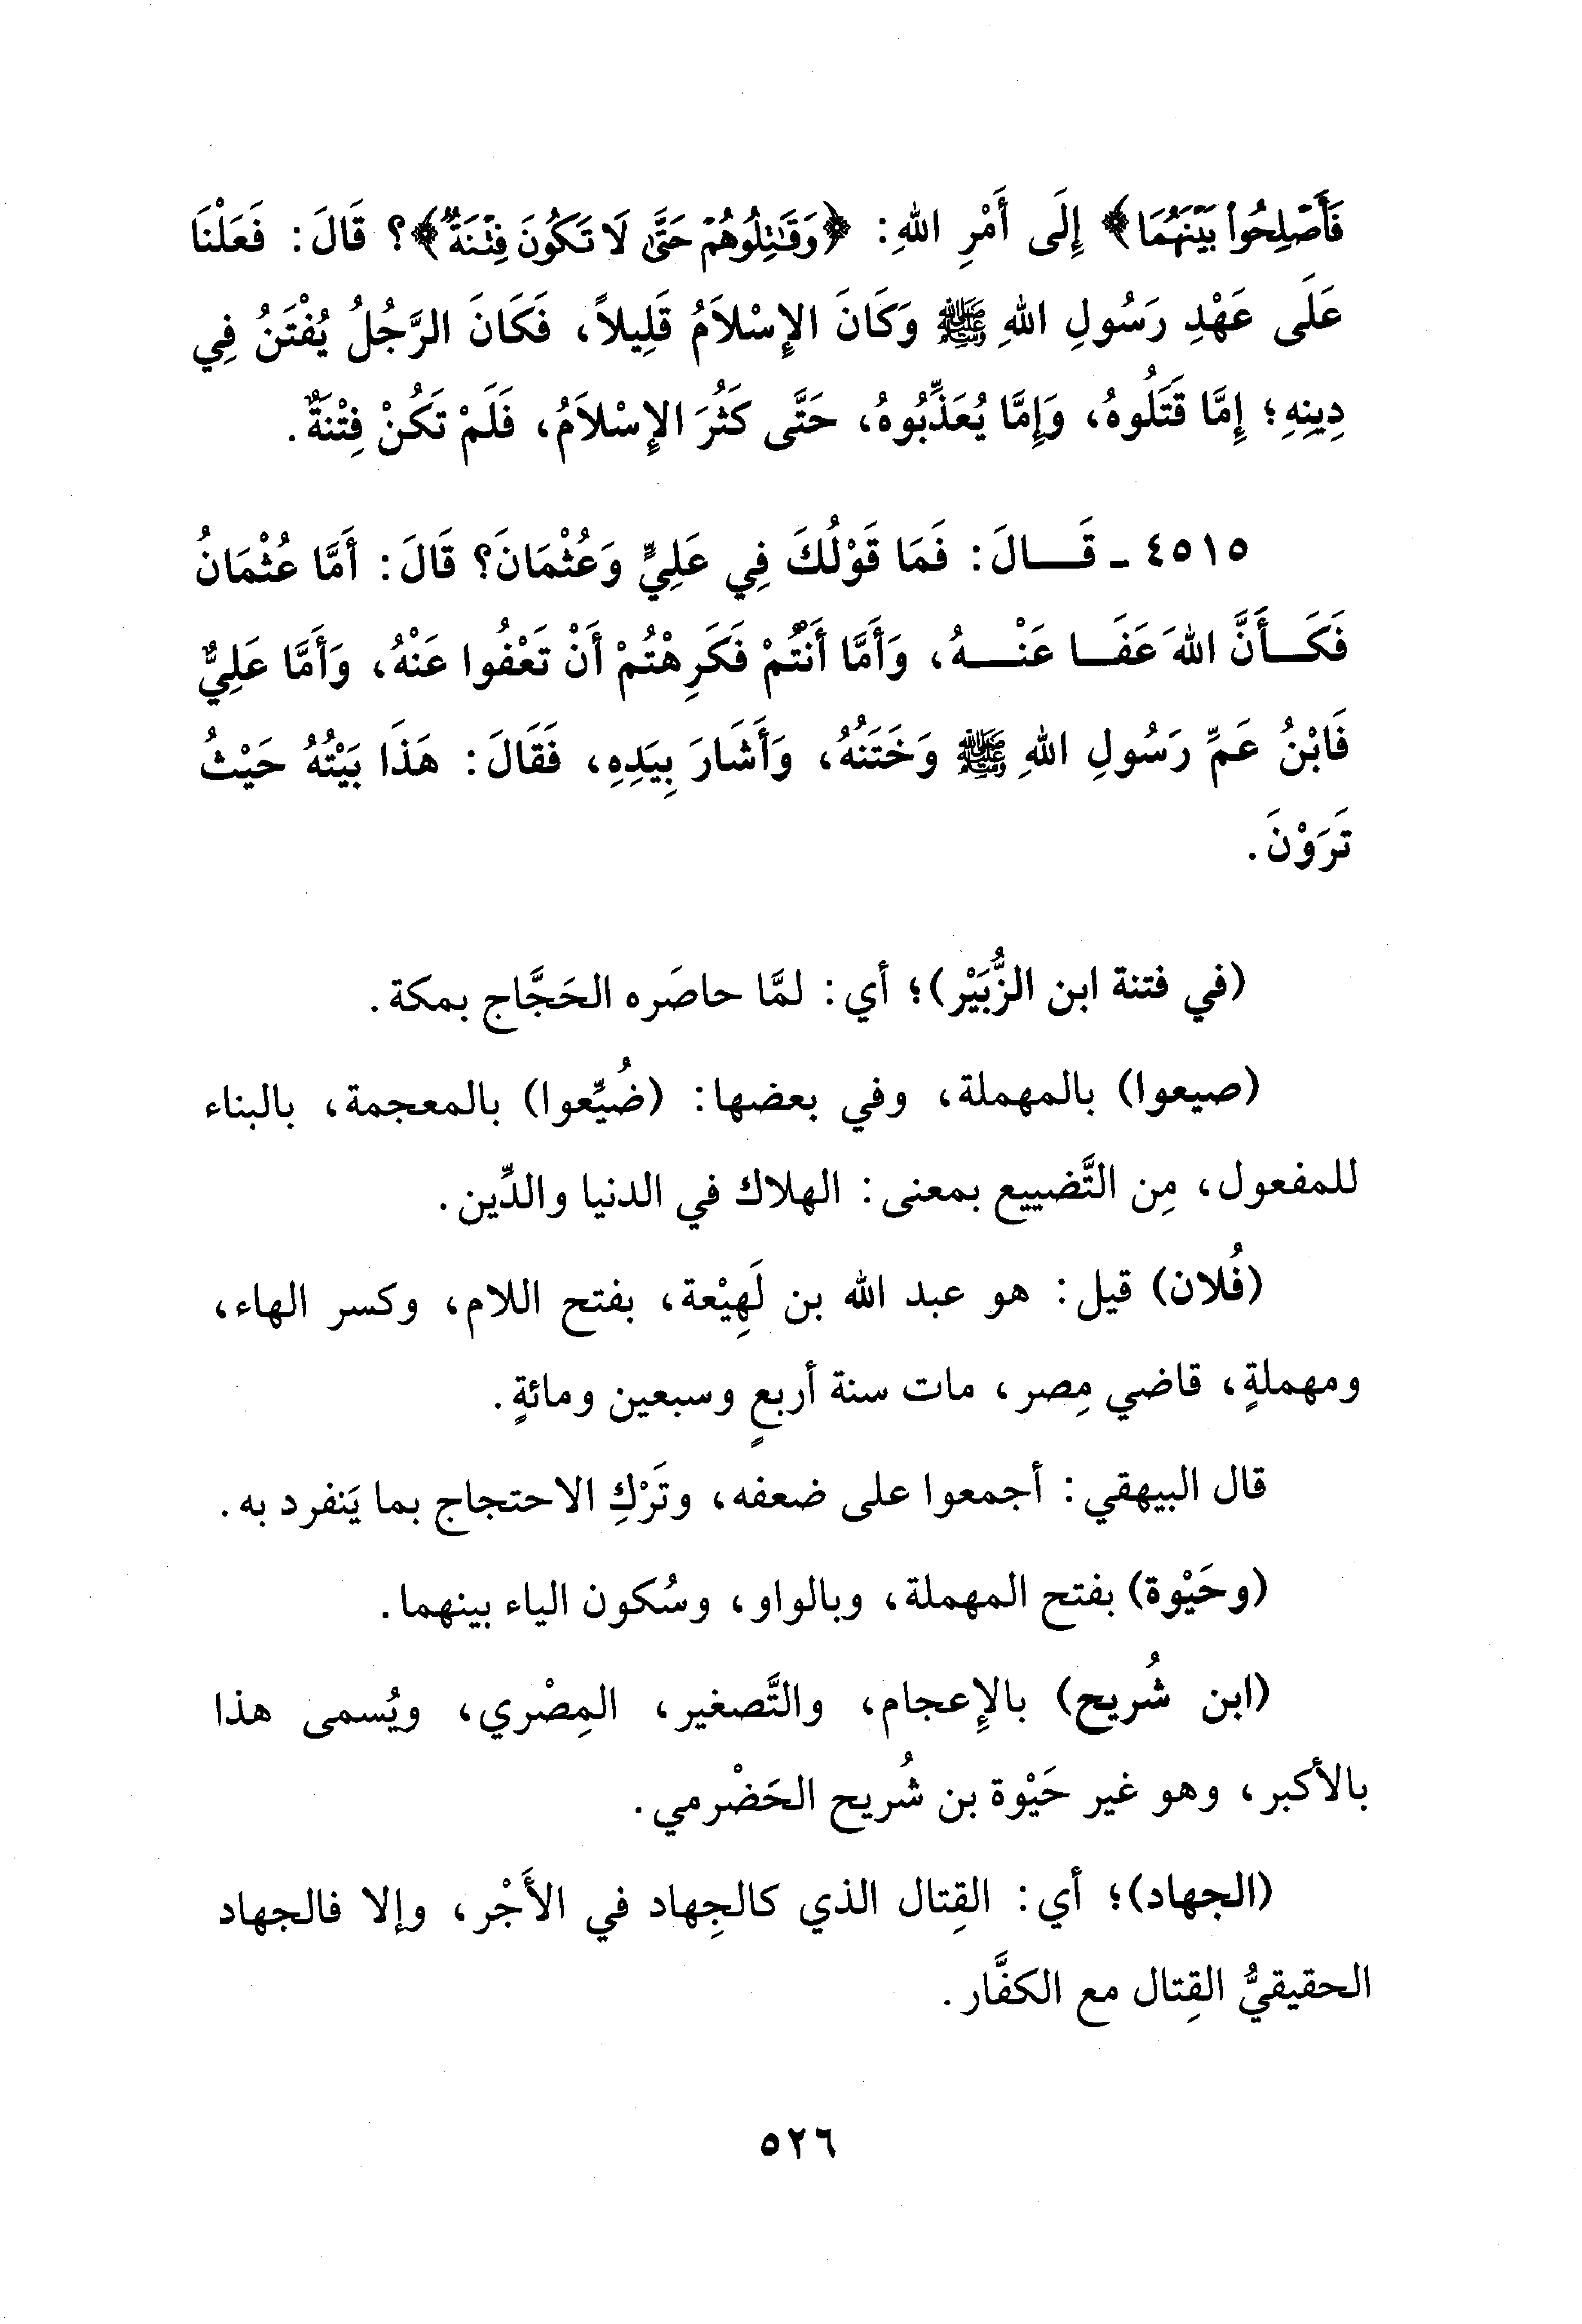 فَأَصْلِحُوا بَيْنَهُمَا﴾ إِلَى أَمْرِ اللهِ: ﴿وَقَاتِلُوهُمْ حَتَّى لَا تَكُونَ فِتْنَةٌ﴾؟ قَالَ: فَعَلْنَا
عَلَى عَهْدِ رَسُولِ اللهِ ﷺ وَكَانَ الإِسْلاَمُ قَلِيلاً، فَكَانَ الرَّجُلُ يُفْتَنُ فِي
دِينِهِ؛ إِمَّا قَتَلُوهُ، وَإِمَّا يُعَذِّبُوهُ، حَتَّى كَثُرَ الإِسْلاَمُ، فَلَمْ تَكُنْ فِتْنَةٌ.
٤٥١٥ ـ قَـــالَ: فَمَا قَوْلُكَ فِي عَلِيٍّ وَعُثْمَانَ؟ قَالَ: أَمَّا عُثْمَانُ
فَكَـــأَنَّ اللهَ عَفَـــا عَنْـــهُ، وَأَمَّا أَنْتُمْ فَكَرِهْتُمْ أَنْ تَعْفُوا عَنْهُ، وَأَمَّا عَلِيٌّ
فَابْنُ عَمِّ رَسُولِ اللهِ ﷺ وَخَتَنُهُ، وَأَشَارَ بِيَدِهِ، فَقَالَ: هَذَا بَيْتُهُ حَيْثُ
تَرَوْنَ.
(في فتنة ابن الزُّبَيْر)؛ أي: لمَّا حاصَره الحَجَّاج بمكة.
(صيعوا) بالمهملة، وفي بعضها: (ضُيِّعوا) بالمعجمة، بالبناء
للمفعول، مِن التَّضييع بمعنى: الهلاك في الدنيا والدِّين.
(فُلان) قيل: هو عبد الله بن لَهِيْعة، بفتح اللام، وكسر الهاء،
ومهملةٍ، قاضي مِصر، مات سنة أربعٍ وسبعين ومائةٍ.
قال البيهقي: أجمعوا على ضعفه، وتَرْكِ الاحتجاج بما يَنفرد به.
(وحَيْوة) بفتح المهملة، وبالواو، وسُكون الياء بينهما.
(ابن شُريح) بالإعجام، والتَّصغير، المِصْري، ويُسمى هذا
بالأكبر، وهو غير حَيْوة بن شُريح الحَضْرمي.
(الجهاد)؛ أي: القِتال الذي كالجِهاد في الأَجْر، وإلا فالجهاد
الحقيقيُّ القِتال مع الكفَّار.
٥٢٦